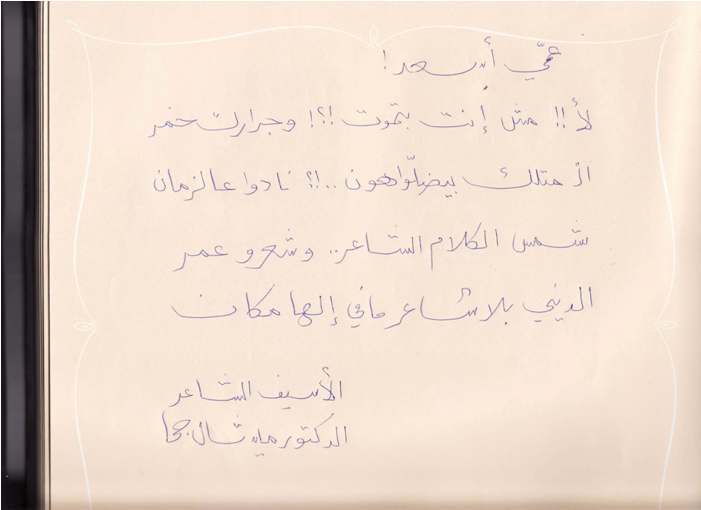 عمّي أسعد!
لأ!! مش إنت بتموت !؟! وجرارك خمر
الْ متلك بيضلّوا هون ..!؟ نادوا عالزمان
شمس الكلام الشاعر.. وشعرو عمر
الدني بلا شاعر ما في إلها مكان
الأسيف الشاعر
الدكتور ميشال جحا